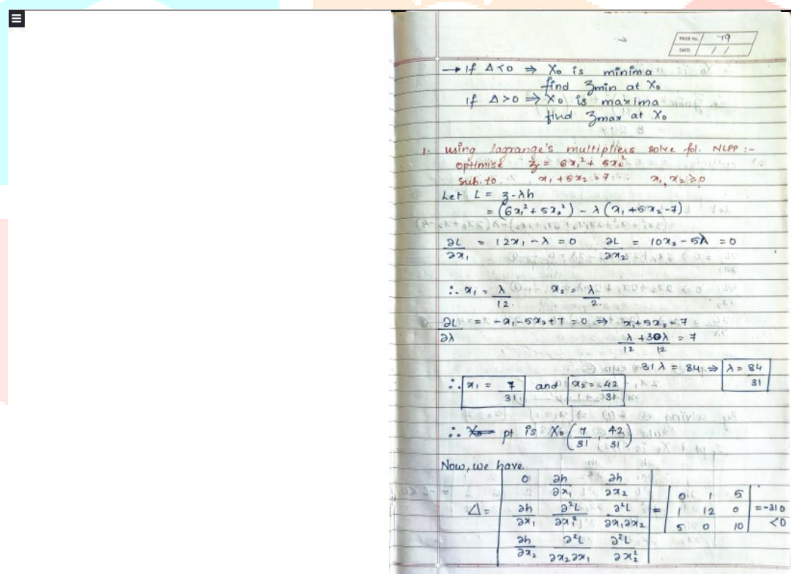 PAGE No. 79
DATE / /
→ If Δ<0 ⇒ X₀ is minima
find 𝓏min at X₀
If Δ>0 ⇒ X₀ is maxima
find 𝓏max at X₀
1. Using lagrange's multipliers solve fol. NLPP :-
optimise z = 6x₁² + 5x₂²
Sub. to x₁ + 5x₂ = 7 x₁, x₂ ≥ 0
Let L = z - λh
= (6x₁² + 5x₂²) - λ (x₁ + 5x₂ - 7)
∂L/∂x₁ = 12x₁ - λ = 0 ∂L/∂x₂ = 10x₂ - 5λ = 0
∴ x₁ = λ/12 x₂ = λ/2
∂L/∂λ = -x₁ - 5x₂ + 7 = 0 ⇒ x₁ + 5x₂ = 7
λ/12 + 30λ/12 = 7
31λ = 84 ⇒ λ = 84/31
∴ x₁ = 7/31 and x₂ = 42/31
∴ pt is X₀ (7/31, 42/31)
Now, we have
Δ = | 0 ∂h/∂x₁ ∂h/∂x₂ | = | 0 1 5 | = -310
| ∂h/∂x₁ ∂²L/∂x₁² ∂²L/∂x₁∂x₂ | | 1 12 0 | <0
| ∂h/∂x₂ ∂²L/∂x₂∂x₁ ∂²L/∂x₂² | | 5 0 10 |